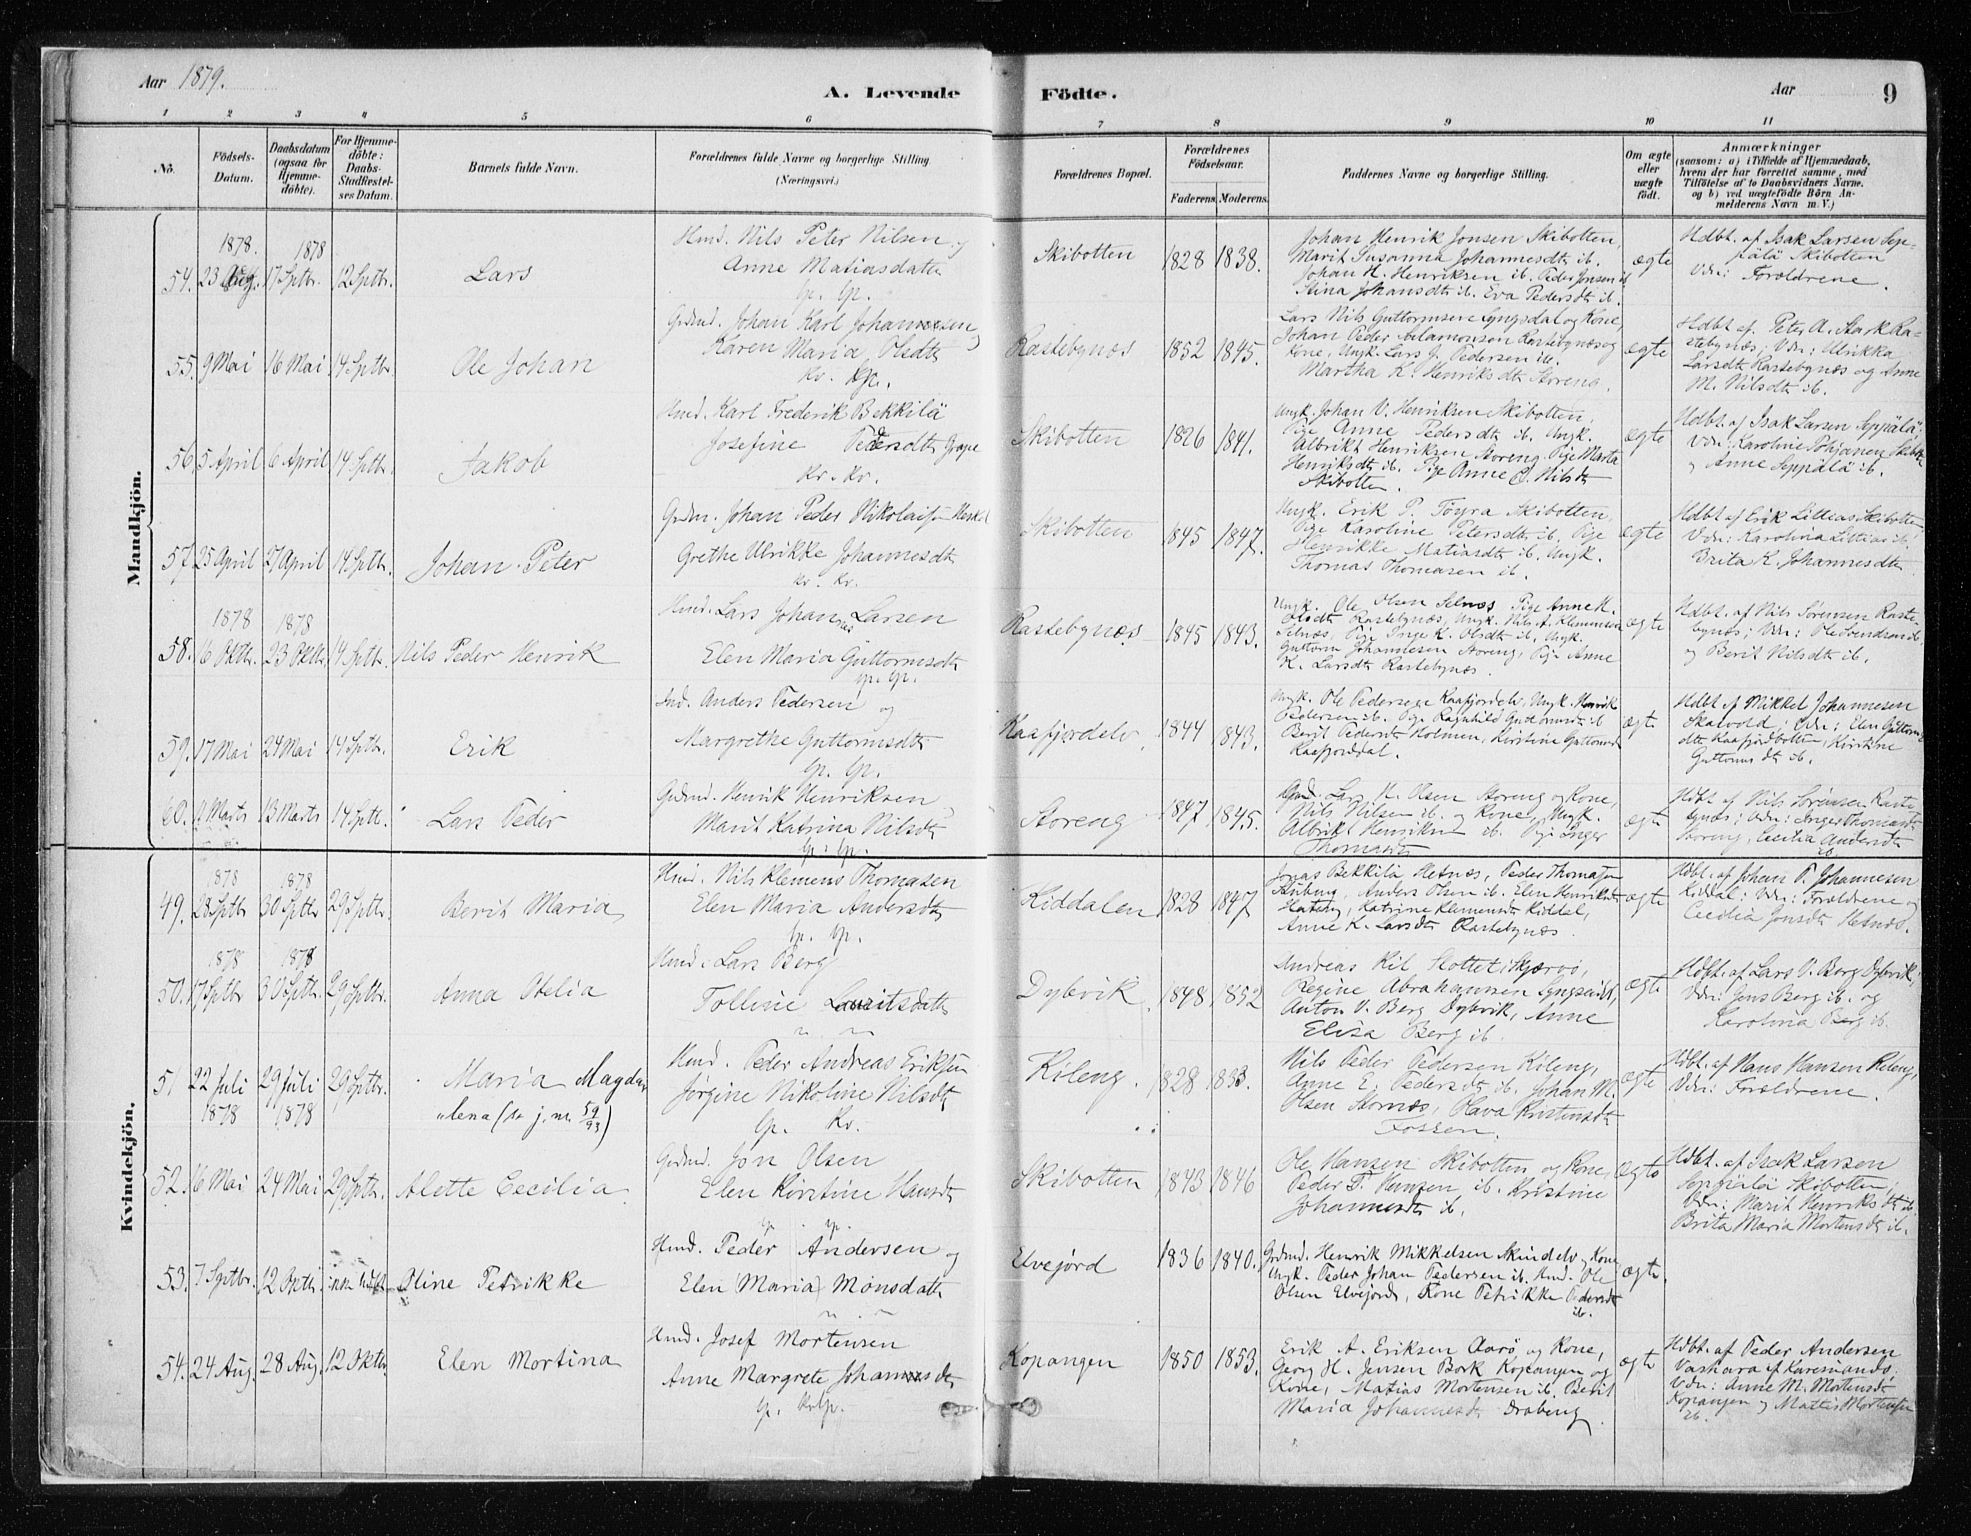 Aar 1879.
A. Levende Födte.
Aar
9
1 2 3 4 5 6 7 8 9 10 11
No.
Födsels-Datum.
Daabsdatum (ogsaa for Hjemme-döbte).
For Hjemme-döbte: Daabs-Stadfæstel-ses Datum.
Barnets fulde Navn.
Forældrenes fulde Navne og borgerlige Stilling
(Næringsvei.)
Forældrenes Bopæl.
Forældrenes Födselsaar.
Faderens. Moderens.
Faddernes Navne og borgerlige Stilling.
Om ægte eller uægte födt.
Anmærkninger
(saasom: a) i Tilfælde af Hjemmedaab, hvem der har forrettet samme, med Tilföielse af to Daabsvidners Navne. og b) ved uægtefödte Börn An-melderens Navn m. V.)
Mandkjön.
1878. 1878
54. 23 Aug. 17 Sptbr. 12 Sptbr. Lars
Hmd. Nils Peter Nilsen og
Anne Matiasdatter
Skibotten 1828 1838.
Johan Henrik Jonsen Skibotten,
Marit Susanna Johannesdtr ib.
Johan H. Henriksen ib. Peder Jonsen ib
Stina Johansdtr ib. Eva Pedersdtr ib.
ægte
Hdbt. af Isak Larsen Sep-
pälä Skibotten
Vdn: Forældrene.
55. 9 Mai 16 Mai 14 Sptbr. Ole Johan
Grdmd. Johan Karl Johannesen og
Karen Maria Olsdtr
Rastebynæs 1852 1845.
Lars Nils Guttormsen Lyngsdal og Kone,
Johan Peder Salamonsen Rastebynæs og
Kone, Ungk. Lars J. Pedersen ib.
Martha K. Henriksdtr Storeng.
ægte
Hdbt. af Peter A. Ra-
stebynæs, Vdn: Ulrikka
Larsdtr Rastebynæs og Anne
M. Nilsdtr ib.
56. 5 April 6 April 14 Sptbr. Jakob
Hmd. Karl Frederik Bekkilä
Josefine Pedersdtr Grape
Kv. Kv.
Skibotten 1826 1841.
Ungk. Johan V. Henriksen Skibotten,
Pige Anne Pedersdtr ib. Ungk.
Albrikt Henriksen Storeng, Pige Marta
Henriksdtr ib. Pige Anne C. Nilsdtr
Skibotten.
ægte
Hdbt. af Isak Larsen Seppälä.
Vdn: Karoline Pohjanen Skibotten
og Anne Seppälä ib.
57. 25 April 27 April 14 Sptbr. Johan Peter
Grdm. Johan Peder Nikolaisen
Grethe Ulrikke Johannesdtr
Kv. Kv.
Skibotten 1845 1847.
Ungk. Erik P. Töyrä Skibotten,
Pige Karoline Petersdtr ib. Pige
Henrikke Matiasdtr ib. Ungk.
Thomas Thomasen ib.
ægte
Hdbt. af Erik Littias Skibotten
Vdn: Karolina Littias ib.
Brita K. Johannesdtr
1878 1878
58. 16 Oktbr. 23 Oktbr. 14 Sptbr. Nils Peder Henrik
Hmd. Lars Johan Larsen
Elen Maria Guttormsdtr
Rastebynæs 1845 1843.
Ungk. Ole Olsen Selnæs, Pige Anne M.
Olsdtr Rastebynæs, Ungk. Nils A. Klemensen
Selnæs, Pige Inge K. Olsdtr ib. Ungk.
Guttorm Johannesen Storeng, Pige Anne
K. Larsdtr Rastebynæs.
ægte
Hdbt. af Nils Sörensen Raste-
bynæs; Vdn: Ole Svendsen ib.
og Berit Nilsdtr ib.
59. 17 Mai 24 Mai 14 Sptbr. Erik
Ind. Anders Pedersen og
Margrethe Guttormsdtr
Kaafjordelv 1844 1843.
Ungk. Ole Pedersen Kaafjordelv, Ungk. Henrik
Pedersen ib. Pige Ragnhild Guttormsdtr ib
Berit Pedersdtr Holmen, Kirstine Guttormsdtr
Kaafjorddal.
ægte
Hdbt. af Mikkel Johannesen
Skatvold; Vdn: Elen Guttorms
dtr Kaafjordbotten, Kirstine
Guttormsdtr ib.
60. 11 Marts 13 Marts 14 Sptbr. Lars Peder
Grdmd. Henrik Henriksen
Marit Katrina Nilsdtr
Storeng 1847 1845.
Grmd. Lars N. Olsen Storeng og Kone,
Nils Nilsen ib. og Kone, Ungk.
Albrikt Henriksen ib. Pige Inger
Thomasdtr
ægte
Hdbt. af Nils Sörensen Raste-
bynæs; Vdn: Inger Thomasdtr
Storeng, Cecilia Andersdtr
ib.
Kvindekjön.
1878 1878
49. 28 Sptbr 30 Sptbr 29 Sptbr. Berit Maria
Hmd. Nils Klemens Thomasen
Elen Maria Andersdtr
Kiddalen 1828 1847
Jonas Bekkilä Hetnæs, Peder Thomasen
Anders Olsen ib. Elen Henriksdtr
Katrine Klemensdtr Kiddal,
Anne K. Larsdtr Rastebynæs.
ægte
Hdbt. af Johan P. Johannesen
Kiddal: Vdn: Forældrene og
Cecilia Jonsdtr Hetnæs.
1878 1878
50. 17 Sptbr 30 Sptbr. 29 Sptbr. Anna Otelia
Hmd. Lars Berg
Tolline Lauritsdatter
Dybvik 1848 1852
Andreas Kil Skjærvö,
Regine Abrahamsen Lyngseidet,
Anton V. Berg Dybvik, Anne
Elisa Berg ib.
ægte
Hdbt. af Lars V. Berg Dybvik.
Vdn: Jens Berg ib. og
Karolina Berg ib.
51 22 Juli 29 Juli 29 Sptbr. Maria Magda-
1878 1878 lena (se j. nr. 59/93)
Hmd. Peder Andreas Eriksen
Jörgine Nikoline Nilsdtr
Kileng. 1828 1833.
Nils Peder Pedersen Kileng,
Anne E. Pedersdtr ib. Johan M.
Olsen Stornæs, Olava Kristensdtr
Fossen.
ægte
Hdbt. af Hans Hansen Kileng,
Vdn: Forældrene.
52. 16 Mai 24 Mai 29 Sptbr. Alette Cecilia
Grdmd. Jon Olsen
Elen Kirstine Hansdtr
Skibotten 1843 1846
Ole Hansen Skibotten og Kone,
Peder P. Hansen ib. Kristine
Johannesdtr ib.
ægte
Hdbt. af Isak Larsen
Seppälä Skibotten;
Vdn. Marit Henriksdtr ib.
Brita Maria Mortensdtr ib.
53. 7 Sptbr. 12 Oktbr. ikke hdbt Oline Petrikke
Hmd. Peder Andersen og
Elen (Maria) Mönsdatter
Elvejord 1836 1840.
Grdmd. Henrik Mikkelsen Skindelv og Kone
Ungk. Peder Johan Pedersen ib. Hmd. Ole
Olsen Elvejord, Kone Petrikke Pedersdtr
ib.
ægte.
54. 24 Aug. 28 Aug. 12 Oktbr. Elen Mortina
Hmd. Josef Mortensen
Anne Margrete Johannesdtr
Kopangen 1850 1853.
Erik A. Eriksen Aarö, og Kone,
Georg H. Jensen Bork Kopangen og
Kone, Matias Mortensen ib. Berit
Maria Johannesdtr Draberg.
ægte
Hdbt. af Peder Andersen
Vashara af Karesuando.
Vdn: Anne M. Mortensdtr
Kopangen og Mattis Mortensen
ib.